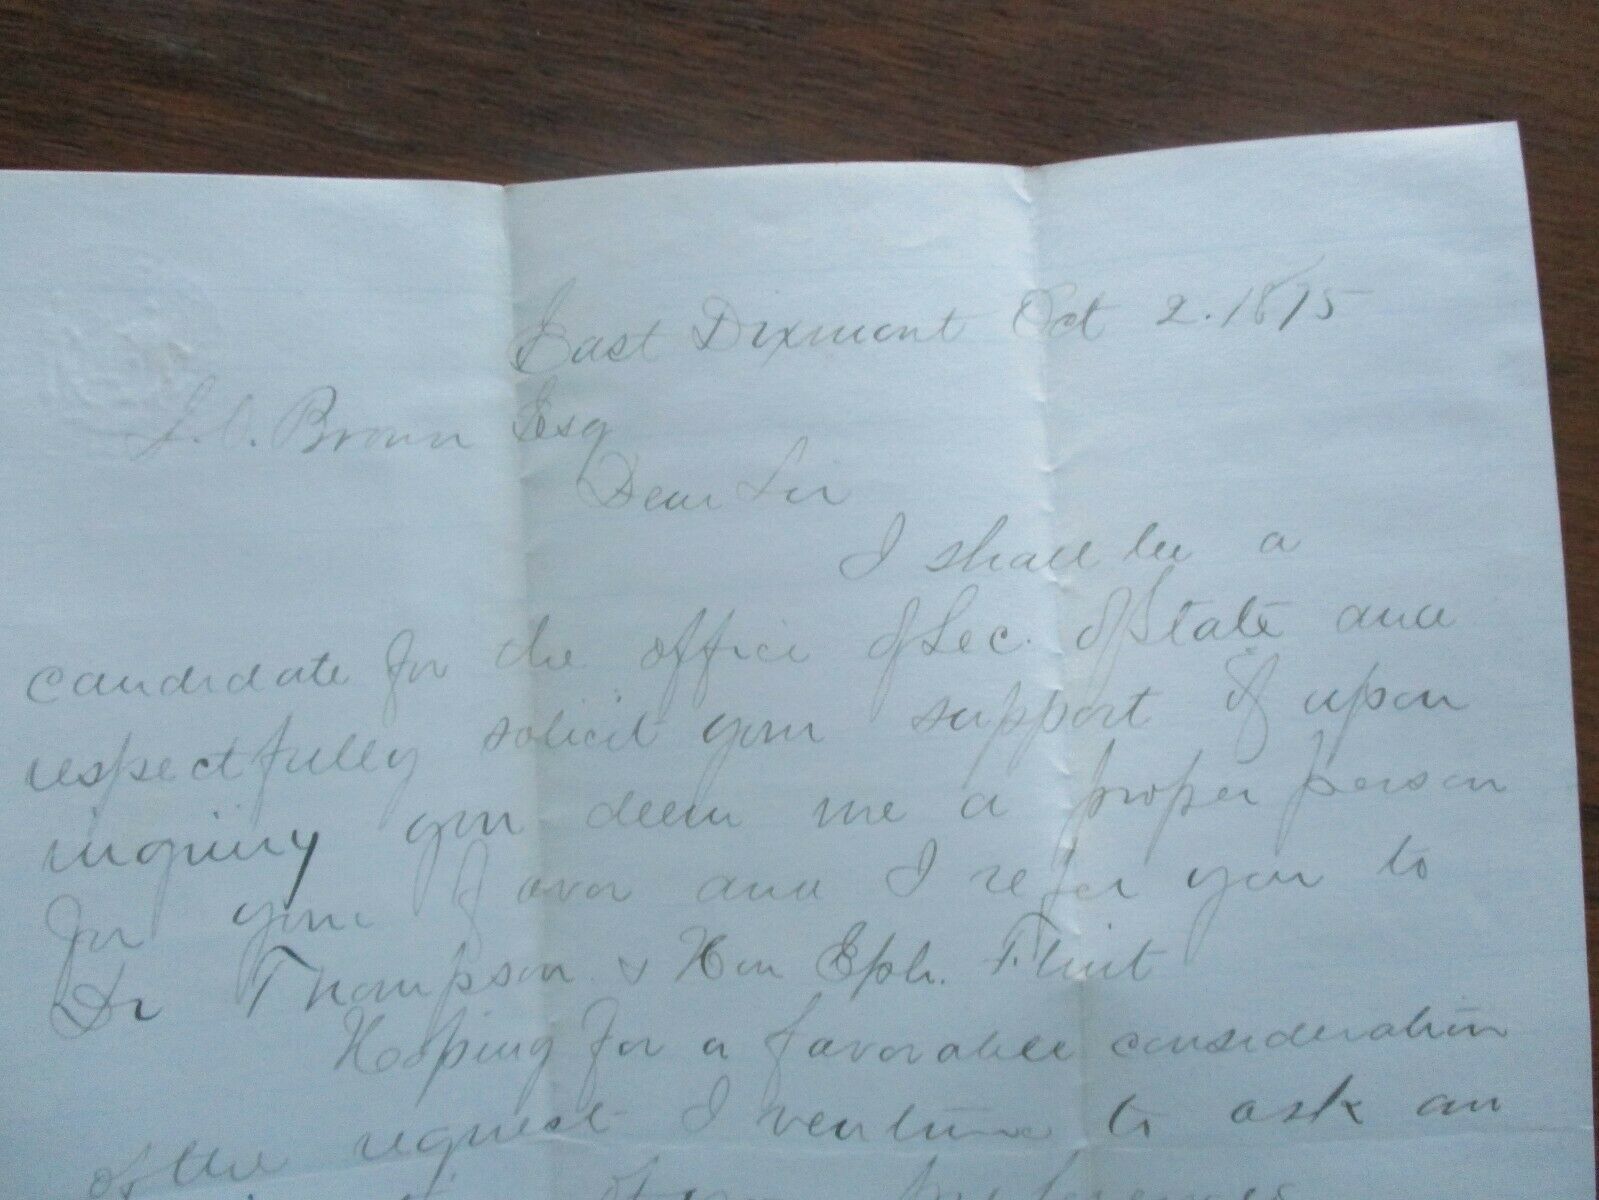 East Dixmont Oct 2. 1875
J. O. Brown Esq
Dear Sir
I shall be a
candidate for the office of Sec. of State and
respectfully solicit your support if upon
inquiry you deem me a proper person
for your favor and I refer you to
Dr Thompson & Hon Eph. Flint
Hoping for a favorable consideration
of the request I venture to ask an
of your preferences